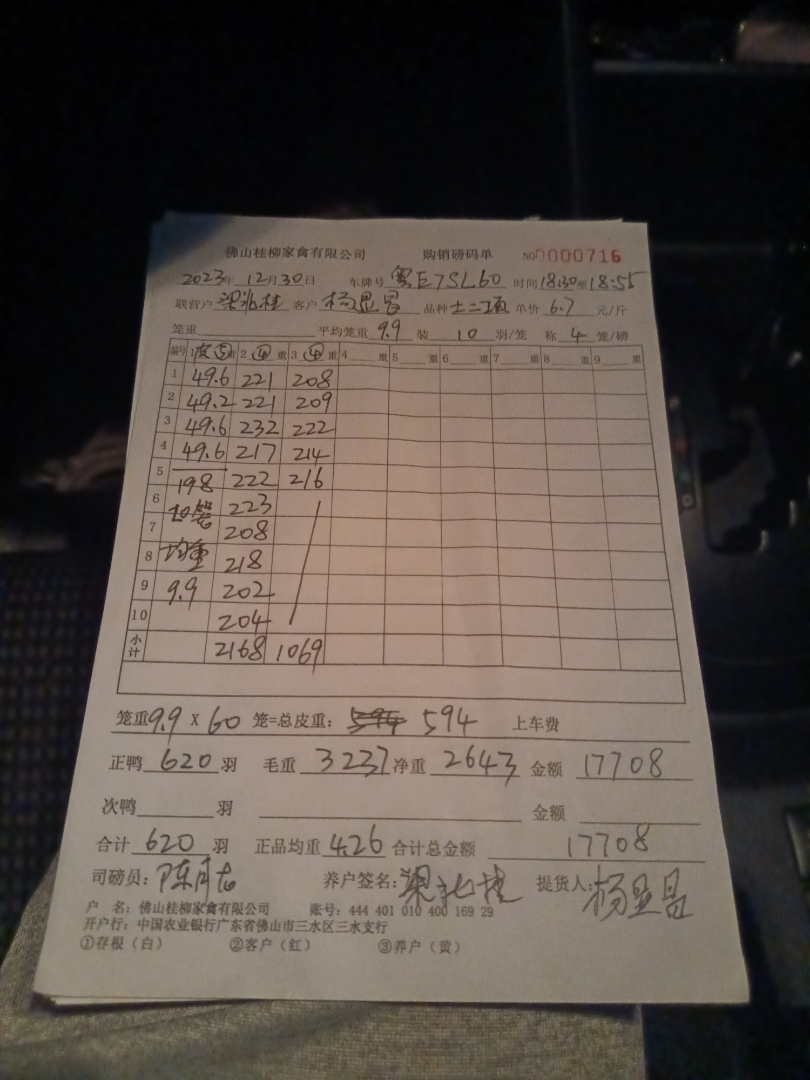 佛山桂柳家禽有限公司 购销磅码单 NO0000716
2023年12月30日 车牌号 粤E7SL60 时间18:30至18:55
联营户 梁兆桂 客户 杨显昌 品种 土二项 单价 6.7 元/斤
笼重 平均笼重 9.9 装 10 羽/笼 称 4 笼/磅
编号 1皮⑤重 2 ④ 重 3 ④ 重 4 重 5 重 6 重 7 重 8 重 9 重
1 49.6 221 208
2 49.2 221 209
3 49.6 232 222
4 49.6 217 214
5 198 222 216
6 20笼 223
7 208
8 均重 218
9 9.9 202
10 204
小计 2168 1069
笼重9.9 X 60 笼=总皮重: 594 594 上车费
正鸭 620 羽 毛重 3237 净重 2643 金额 17708
次鸭 羽 金额
合计 620 羽 正品均重 4.26 合计总金额 17708
司磅员: 养户签名: 梁兆桂 提货人: 杨显昌
户 名: 佛山桂柳家禽有限公司 账号: 444 401 010 400 169 29
开户行: 中国农业银行广东省佛山市三水区三水支行
①存根（白） ②客户（红） ③养户（黄）